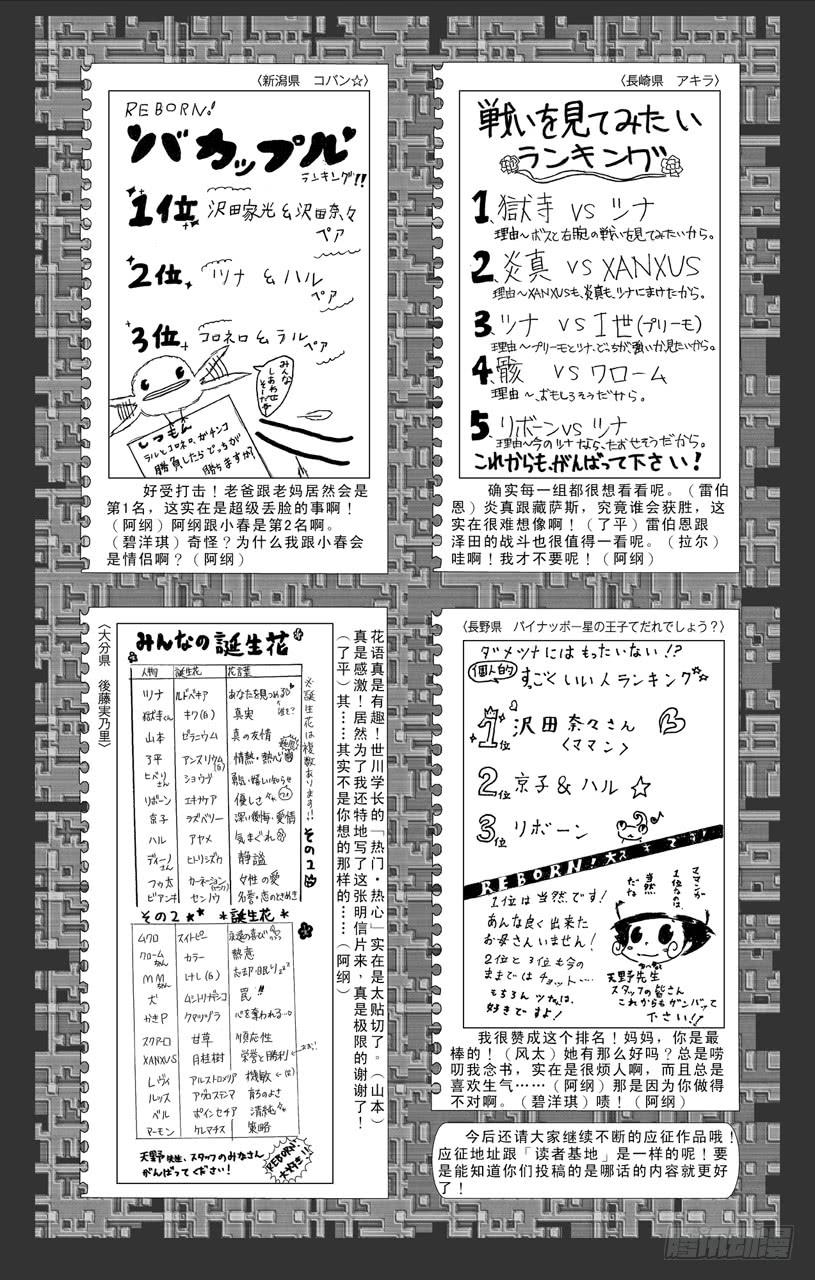 〈新潟県　コパン☆〉
REBORN!
バカップル
ランキング!!
1位 沢田家光&沢田奈々
ペア
2位 ツナ & ハル
ペア
3位 コロネロ & ラル
ペア
みんな
しあわせ
そーだ
しつもん
ラルとコロネロ、ガチンコ
勝負したらどっちが
勝ちますか?
好受打击！老爸跟老妈居然会是
第1名，这实在是超级丢脸的事啊！
（阿纲）阿纲跟小春是第2名啊。
（碧洋琪）奇怪？为什么我跟小春会
是情侣啊？（阿纲）
〈長崎県　アキラ〉
戦いを見てみたい
ランキング
1、獄寺 VS ツナ
理由～ボスと右腕の戦いを見てみたいから。
2、炎真 VS XANXUS
理由～XANXUSも、炎真も、ツナにまけたから。
3、ツナ VS Ⅰ世(プリーモ)
理由～プリーモとツナ、どっちが強いか見たいから。
4、骸 VS クローム
理由～おもしろそうだから。
5、リボーン vs ツナ
理由～今のツナなら、たおせそうだから。
これからも、がんばって下さい!
确实每一组都很想看看呢。（雷伯
恩）炎真跟藏萨斯，究竟谁会获胜，这
实在很难想像啊！（了平）雷伯恩跟
泽田的战斗也很值得一看呢。（拉尔）
哇啊！我才不要呢！（阿纲）
〈大分県　後藤実乃里〉
みんなの誕生花
人物 誕生花 花言葉
ツナ ルドベキア あなたを見つめる
獄寺くん キク(白) 真実
山本 ゼラニウム 真の友情
了平 アンスリウム(白) 情熱・熱心
ヒバリさん ショウブ 嬉しい知らせ
リボーン エキザケア 優しさ
京子 ラズベリー 深い後悔・愛情
ハル アヤメ 気まぐれ
ディーノさん ヒトリシズカ 静謐
フゥ太 カーネーション 女性の愛
ビアンキ センノウ 名誉・恋のときめき
※誕生花は複数あります!!
その1
その2 *誕生花*
ムクロ スイトピー 永遠の喜び
クロームちゃん カラー 熱恋
MMちゃん けし(白) 忘却・眠り
犬 ムシトリナデシコ 罠!!
かきP クマツヅラ 心を奪われる…
スクアーロ 甘草 順応性
XANXUS 月桂樹 栄誉と勝利
レヴィ アルストロメリア 機敏
ルッス アグロステマ 育ちのよさ
ベル ポインセチア 清純
マーモン クレマチス 策略
天野先生、スタッフのみなさん
がんばってください!
REBORN!
大好き!!
花语真是有趣！世川学长的「热门·热心」实在是太贴切了。（山本）
真是感激！居然为了我还特地写了这张明信片来，真是极限的谢谢了！
（了平）其……其实不是你想的那样的……（阿纲）
〈長野県　パイナッポー星の王子てだれでしょう？〉
ダメツナにはもったいない!?
個人的 すっごくいい人ランキング
1位 沢田奈々さん
〈ママン〉
2位 京子&ハル☆
3位 リボーン
REBORN!大スキです!
1位は当然です!
あんな良く出来た
お母さんいません!
2位と3位も今の
ままではチョット…
もちろんツナは、
好きですよ!
ママンが
1位なのは、
当然
だな
天野先生
スタッフの皆さん
これからもガンバッて
下さい!!
我很赞成这个排名！妈妈，你是最
棒的！（风太）她有那么好吗？总是唠
叨我念书，实在是很烦人啊，而且总是
喜欢生气……（阿纲）那是因为你做得
不对啊。（碧洋琪）啧！（阿纲）
今后还请大家继续不断的应征作品哦！
应征地址跟「读者基地」是一样的呢！要
是能知道你们投稿的是哪话的内容就更好
了！
腾讯动漫